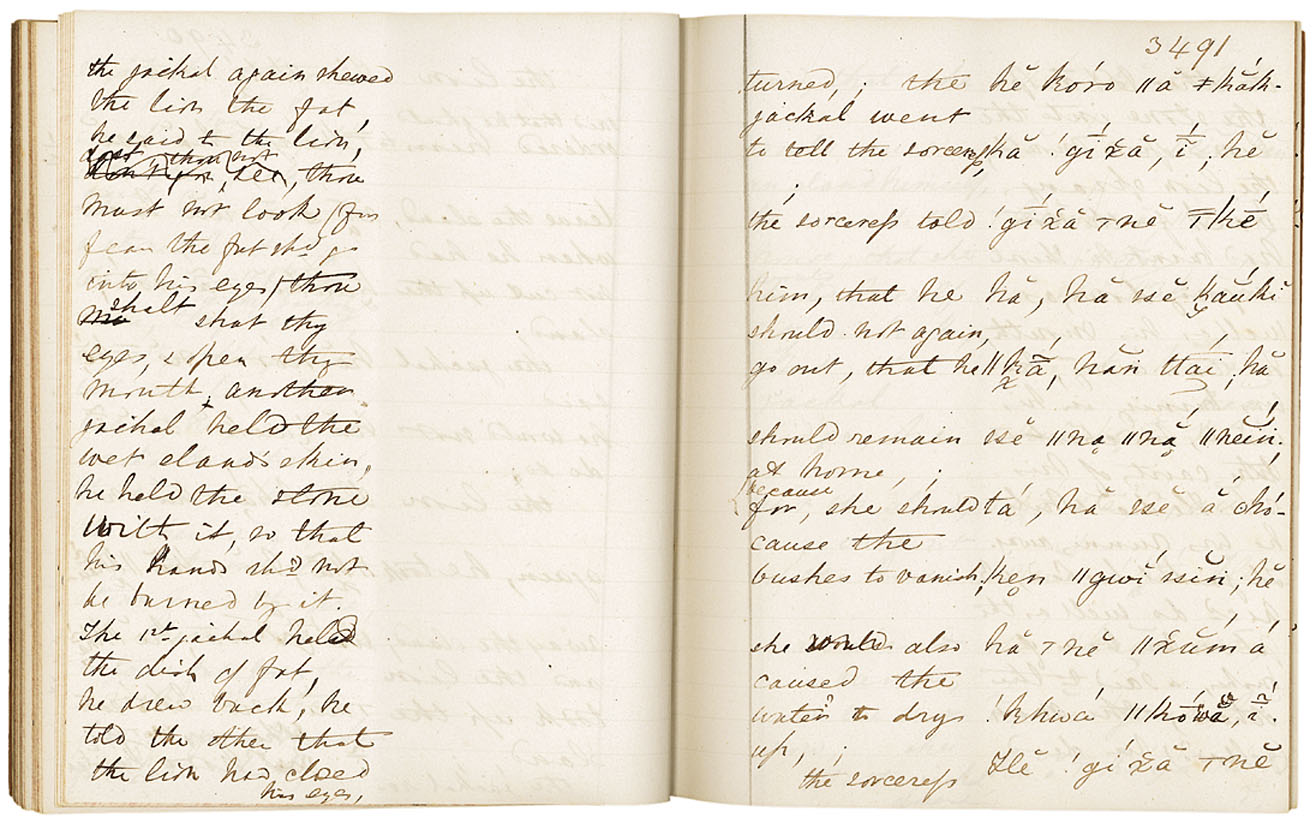 the jackal again shewed
the lion the fat,
he said to the lion,
does thou not
see, thou
must not look (for
fear the fat shd go
into his eyes) thou
shalt shut thy
eyes, & open thy
mouth, another
jackal held the
wet eland's skin,
he held the stone
with it, so that
his hands shd not
be burned by it.
The 1st jackal held
the dish of fat,
he drew back, he
told the other that
the lion had closed
his eyes,
3491
turned, ; the hĕ kóro ǁă ǂkăk-
jackal went
to tell the sorceress, !gíχă, ī, hĕ
;
the sorceress told !gíχă ⊤nĕ
him, that he hă, hă ssĕ kăuki
should not again,
go out, that he hăn ttai, hă
should remain ssĕ ǁna ǁnă ǁnĕin.
at home, ;
because
for, she should tá, hă ssĕ á óhó-
cause the
bushes to vanish, ken ǁgwí ssĭn; hĕ
she would also hă ⊤nĕ ǁχŭm á
caused the
water to dry !khwá ǁkówă, ī.
up, ;
the sorceress Hĕ !gíχă ⊤nĕ